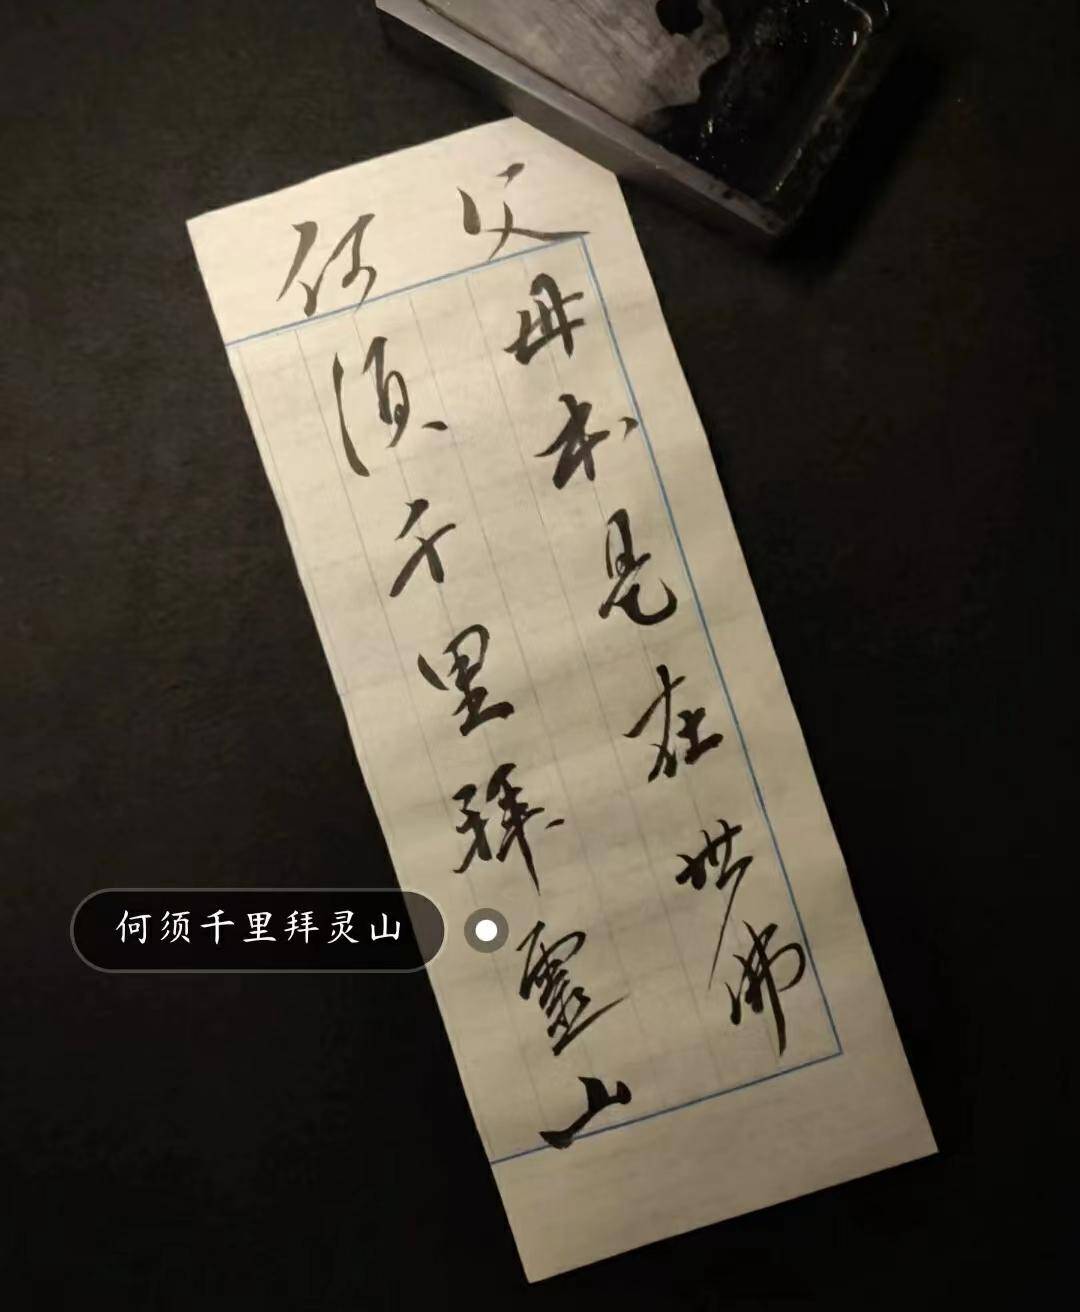 父母本是在世佛
何須千里拜靈山
何须千里拜灵山